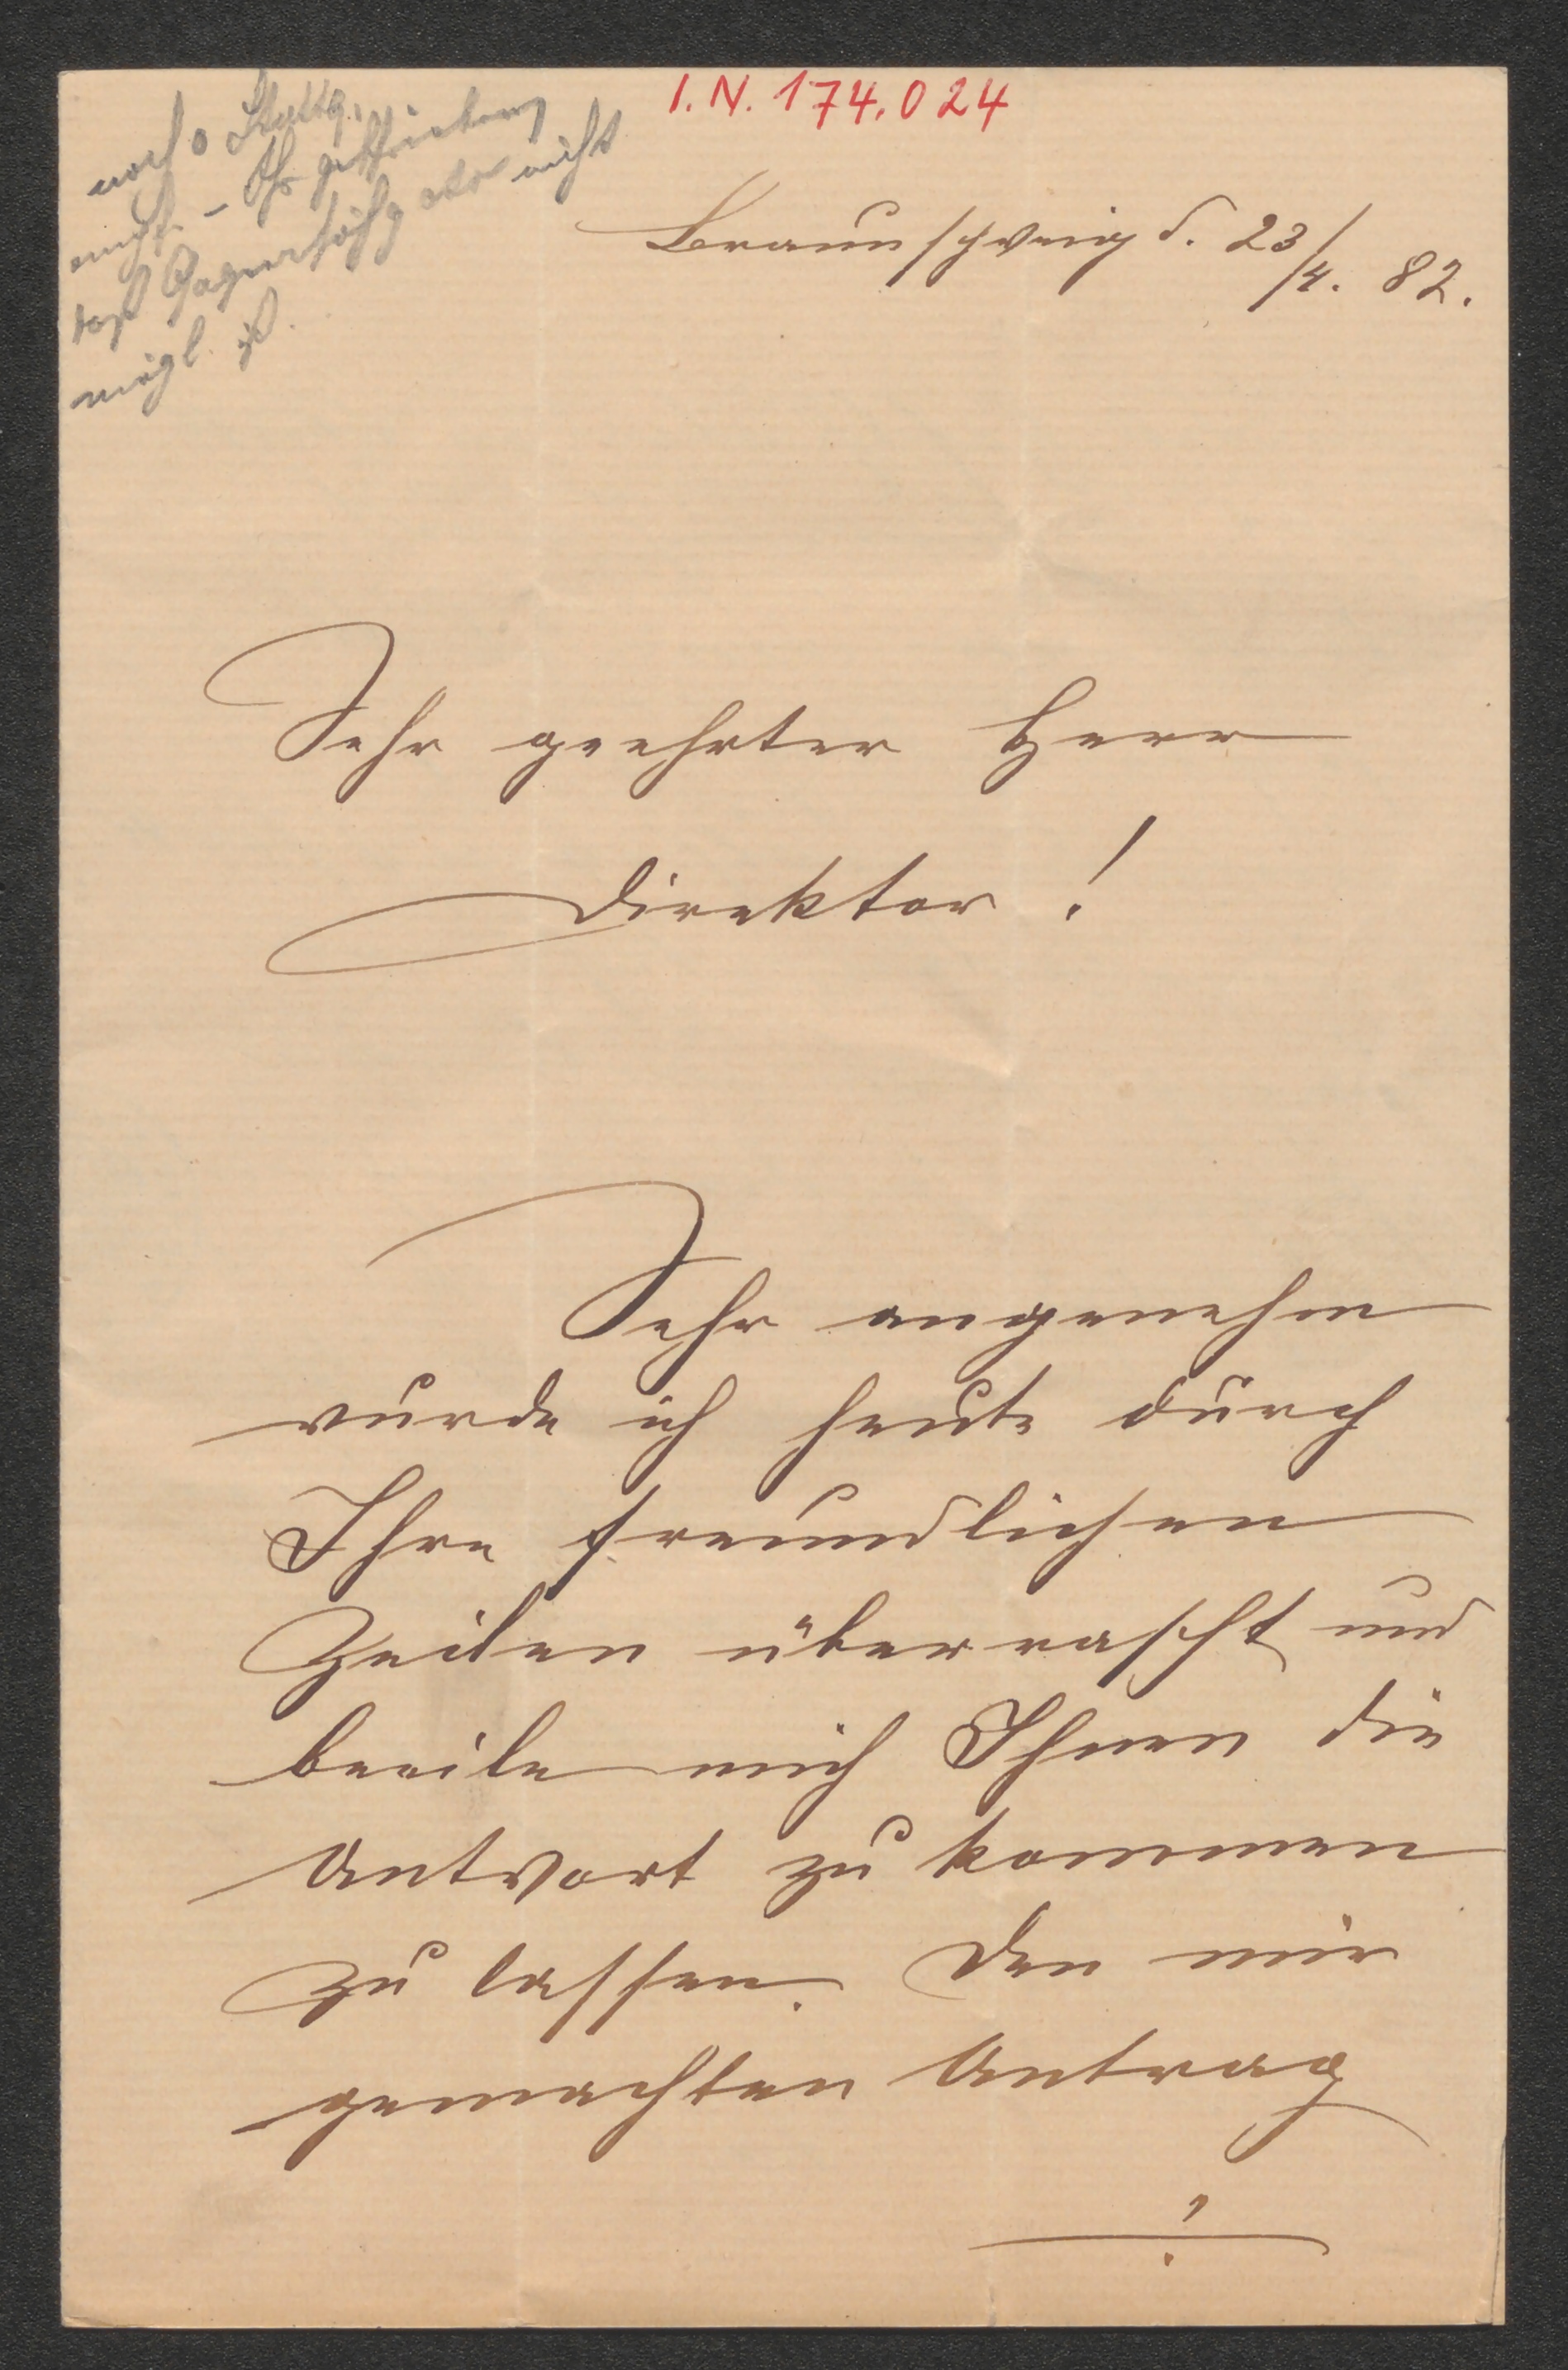 I.N. 174.024
noch
nicht
daß nicht
mögl. ist.
Braunschweig d. 23/4. 82.
Sehr geehrter Herr
Direktor!
Sehr angenehm
wurde ich heute durch
Ihre freundlichen
Zeilen überrascht und
beeile mich Ihnen die
Antwort zu kommen
zu lassen. Den mir
gemachten Antrag